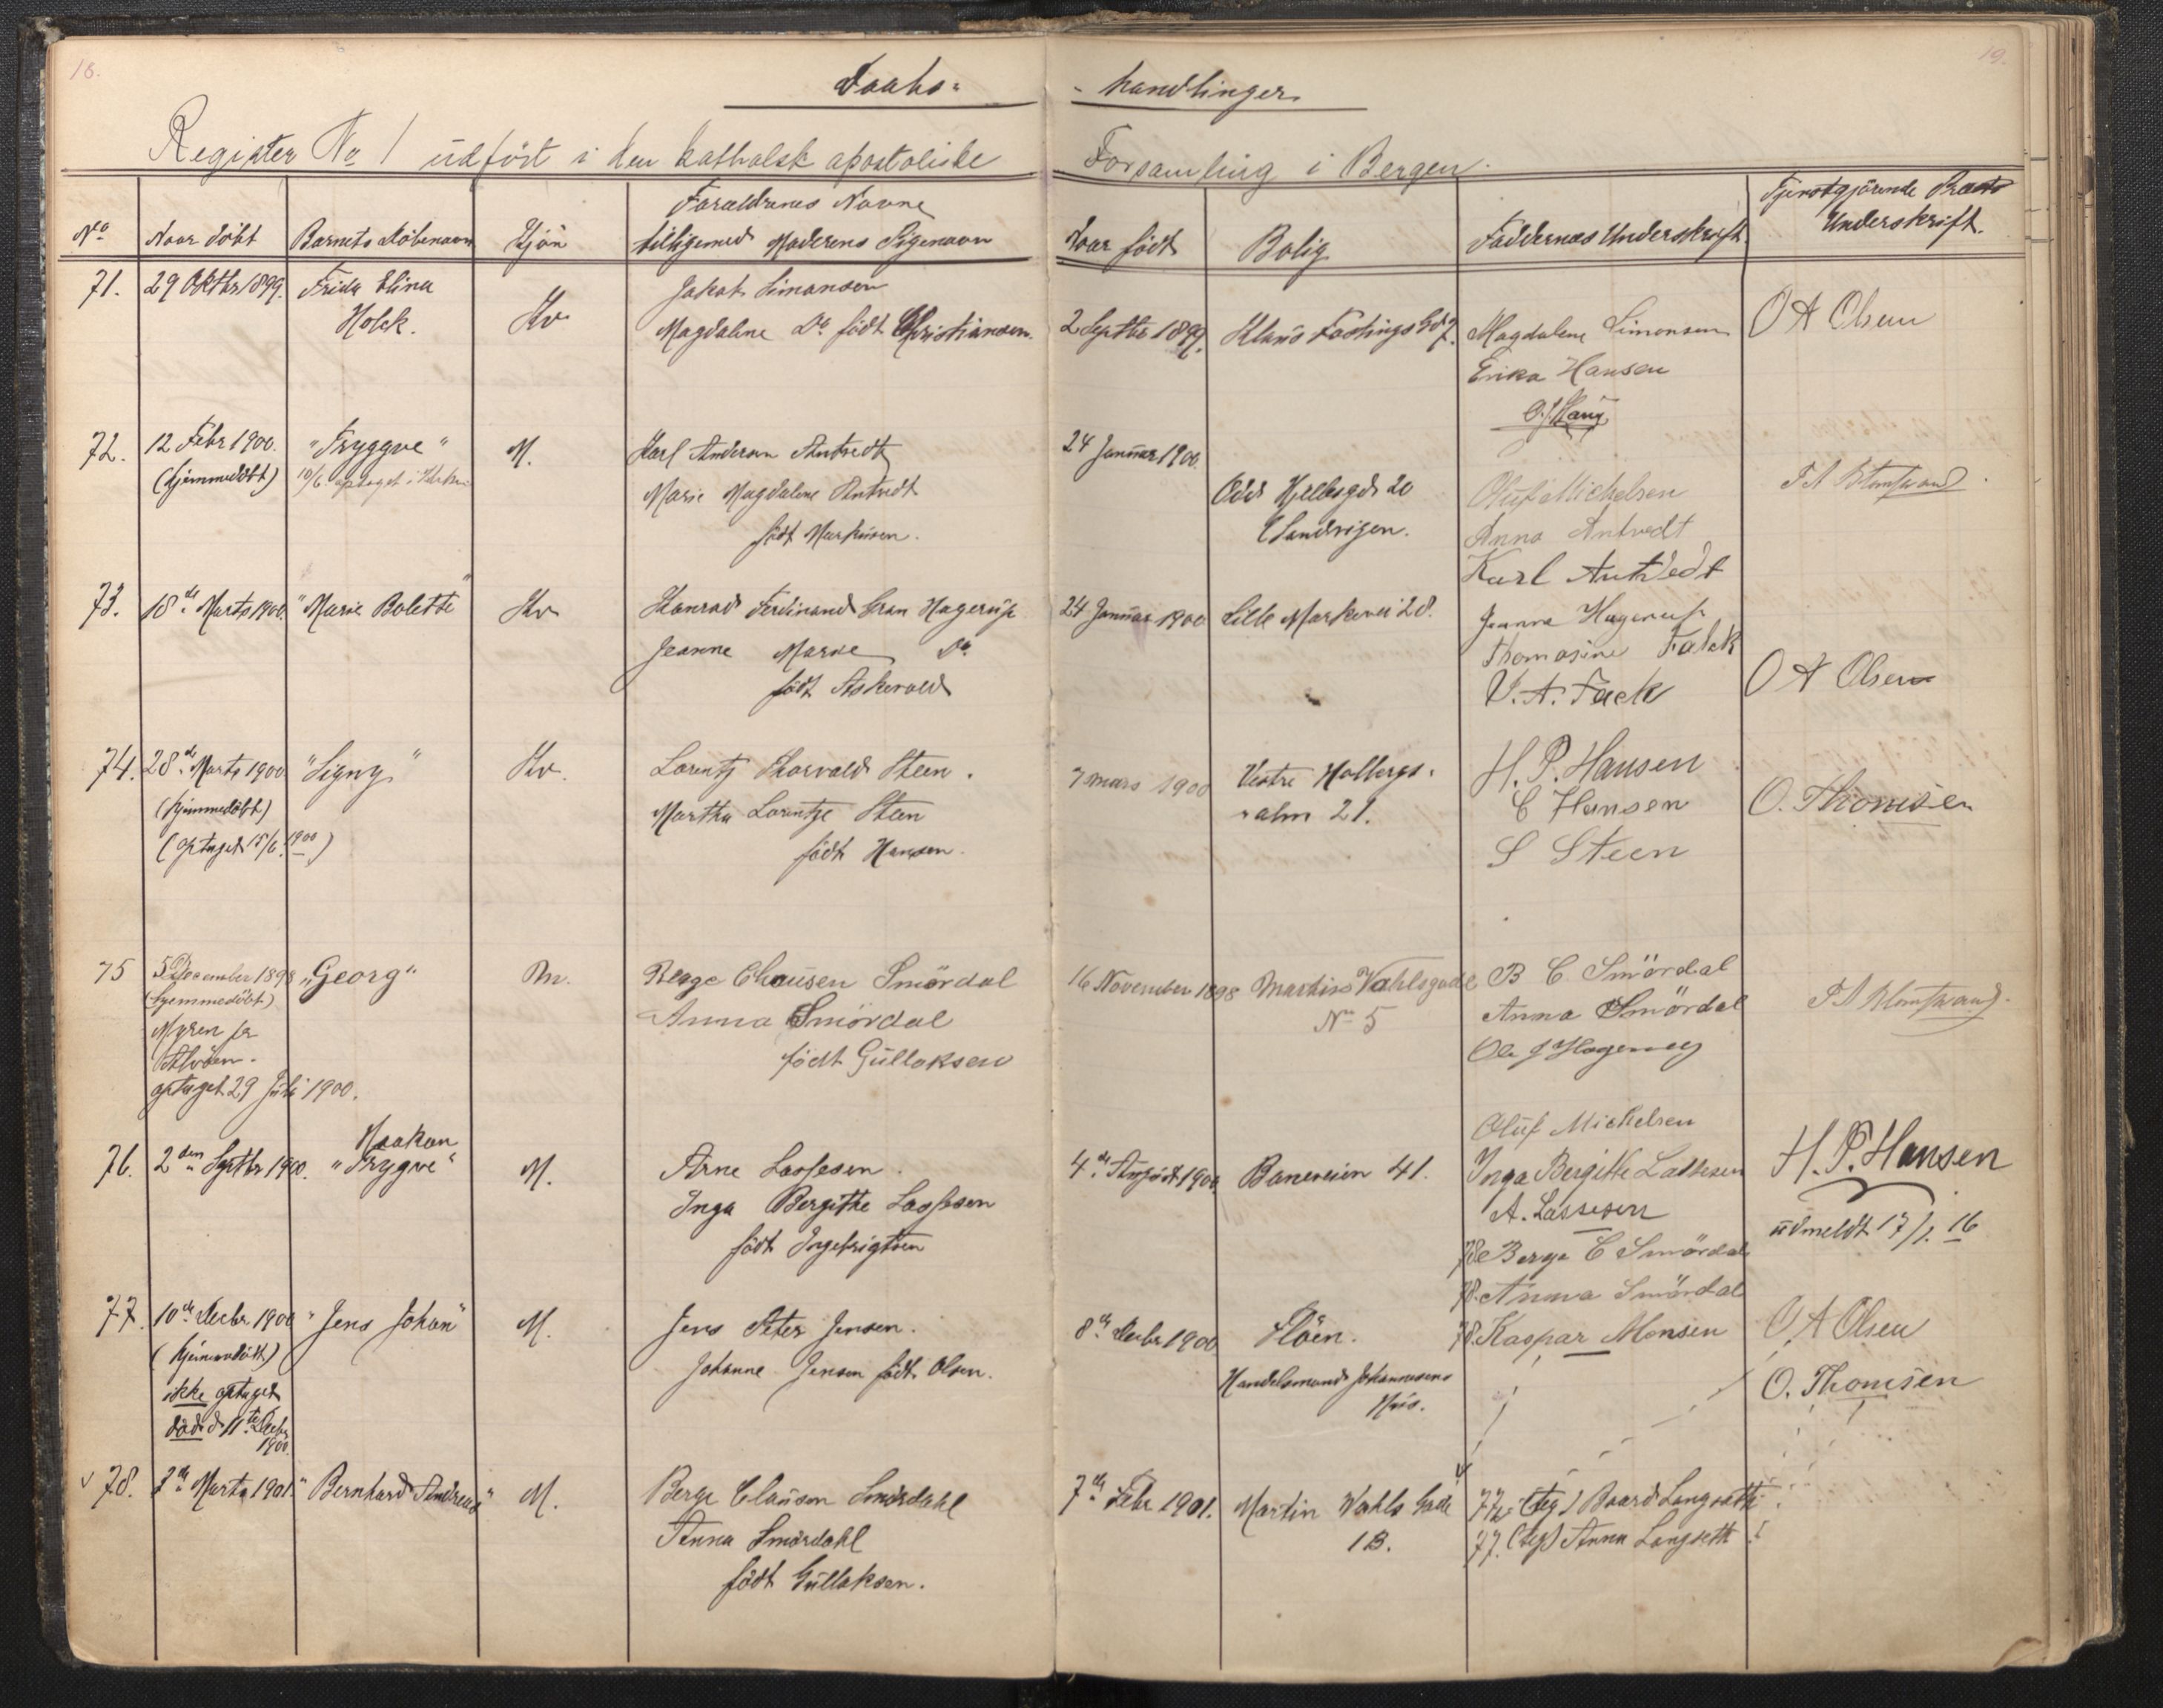 18.
19.
Daabs-
-handlinger
Register No 1 udført i den katholsk apostoliske
Forsamling i Bergen.
No
Naar döbt
Barnets Döbenavn
Kjön
Forældrenes Navne
tilligemed Moderens Pigenavn
Naar født
Bolig
Faddernes Underskrift
Tjenestgjörende Præsts
Underskrift.
71.
29 Oktbr 1899.
Frida Elina
Holck.
Kv
Jakob Simonsen
Magdalene Do födt Christiansen.
2 Septbr 1899.
Klaus Fastings Gd 7.
Magdalene Simonsen
Erika Hansen
O A Olsen
72.
12 Febr 1900.
(hjemmedöbt)
"Tryggve"
10/6. optaget i Kirken
M.
Karl Andersen Antvedt
Marie Magdalene Antvedt
födt Markusen.
24 Januar 1900.
Odd Hjeltesgd 20
Sandvigen.
Oluf Michelsen
Anna Antvedt
Karl Antvedt
73.
18de Marts 1900.
"Marie Bolette"
Kv
Konrad Ferdinand Gran Hagerup
Jeanne Marie Do
født Askevold
24 Januar 1900
Lille Markevei 28.
Jeanne Hagerup
Thomasine Falck
O A Olsen
74.
28de Marts 1900
(hjemmedöbt)
(optaget 15/6. 1900)
"Signy"
Kv.
Lorentz Thorvald Steen.
Martha Lorentze Steen
födt Hansen.
7 mars 1900
Vestre Holbergs-
-alm 21.
H. P. Hansen
C Hansen
S Steen
O. Thomsen
75
5 December 1898
(hjemmedöbt)
Myren pr
Alvöen.
optaget 29 Juli 1900.
"Georg"
M.
Berge Clausen Smördal
Anna Smördal
födt Gullaksen
16 November 1898
Martin Vahlsgade
No 5
B C Smördal
Anna Smördal
76.
2den Septbr 1900.
Haakon
"Trygve"
M.
Arne Lassesen.
Inga Bergithe Lassesen
födt Ingebrigtsen
4de August 1900
Baneveien 41.
Oluf Michelsen
Inga Bergitte Lassesen
A. Lassesen
H. P. Hansen
udmeldt 17/1. 16
78 Berge C Smördal
78. Anna Smördal
78. Kaspar Monsen
77.
10de Decbr 1900
(hjemmedöbt)
ikke optaget
död d 11te Decbr
1900.
"Jens Johan"
M.
Jens Peter Jensen.
Johanne Jensen födt Olsen.
8de Decbr 1900
Flöen.
Handelsmand Johannesens
Hus.
O A Olsen
O. Thomsen
78.
3de Marts 1901.
"Bernhard Andreas"
M.
Berge Clausen Smördahl
Anna Smördahl
födt Gullaksen.
7de Febr 1901.
Martin Wahls Gade
1B.
77. (teg) Baard Langsæth
77. (teg) Anna Langseth